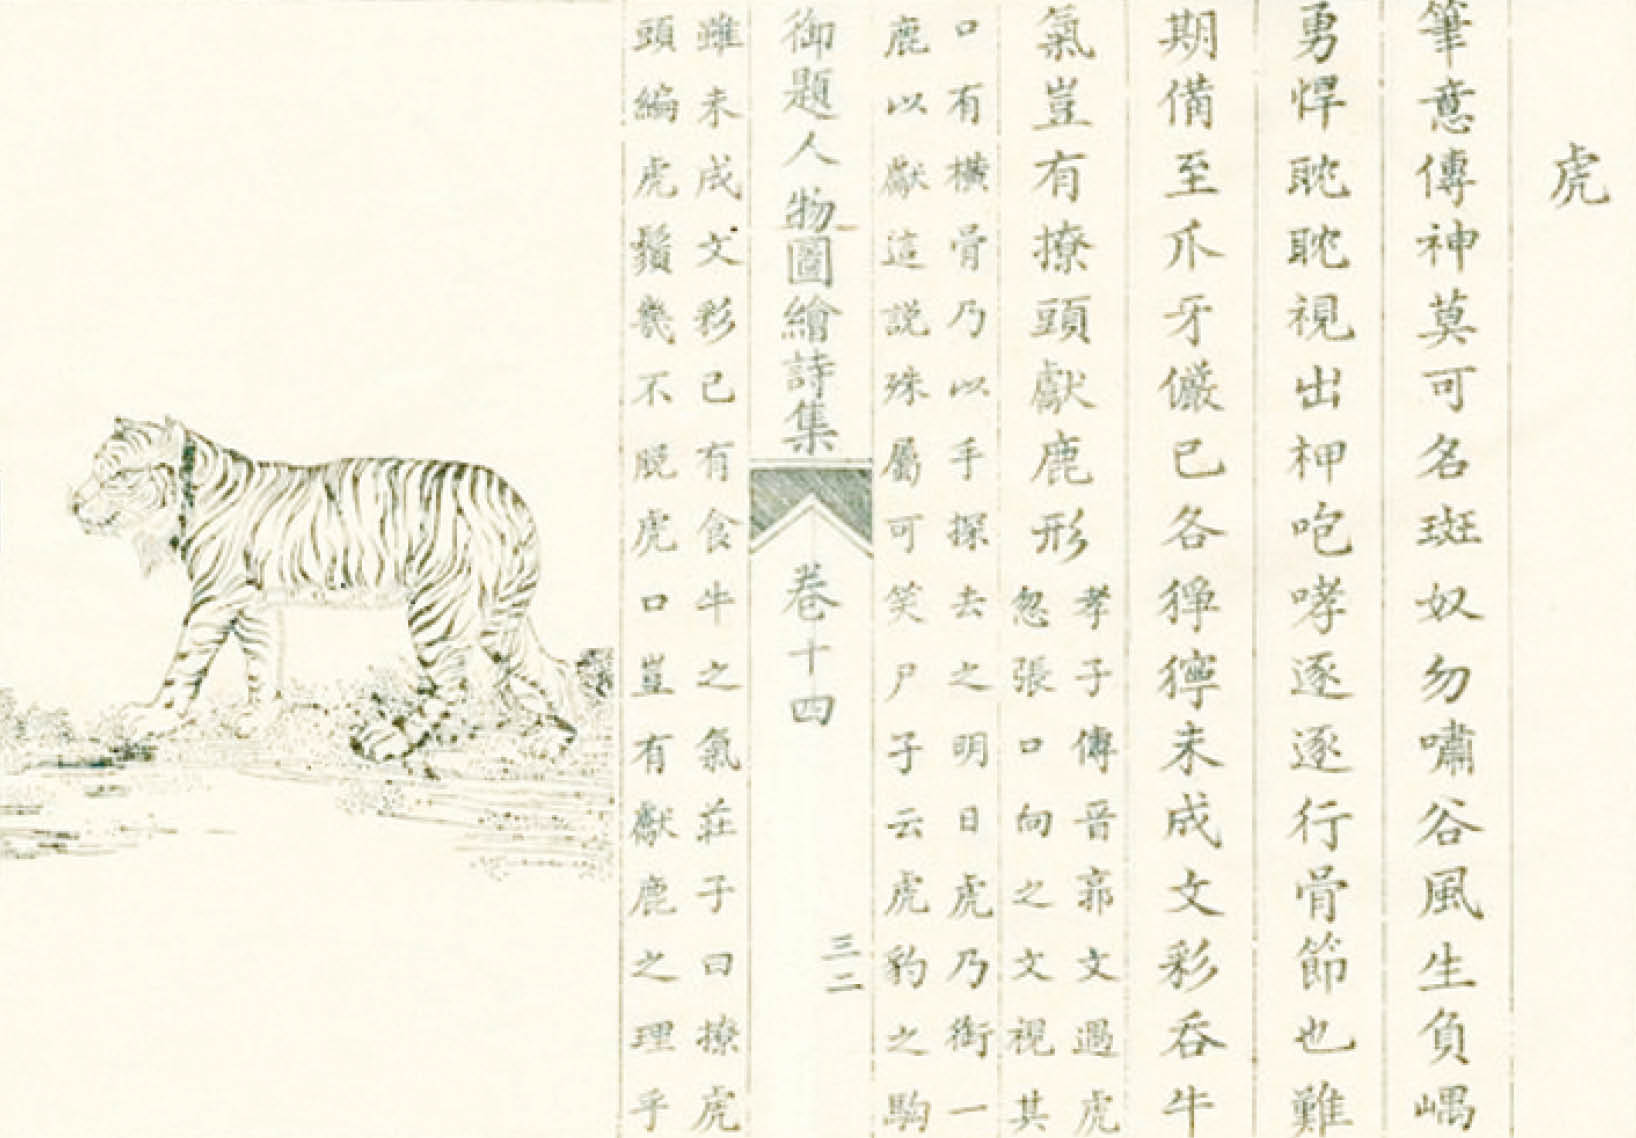 虎
筆意傳神莫可名斑奴勿嘯谷風生負嵎
勇悍眈眈視出柙咆哮逐逐行骨節也難
期備至爪牙儼已各獰獰未成文彩吞牛
氣豈有撩頭獻鹿形
孝子傳晉郭文過虎
忽張口向之文視其
口有橫骨乃以手探去之明日虎乃銜一
鹿以獻這說殊屬可笑尸子云虎豹之駒
御題人物圖繪詩集 卷十四 三二
雖未成文彩已有食牛之氣莊子曰撩虎
頭編虎鬚幾不脫虎口豈有獻鹿之理乎